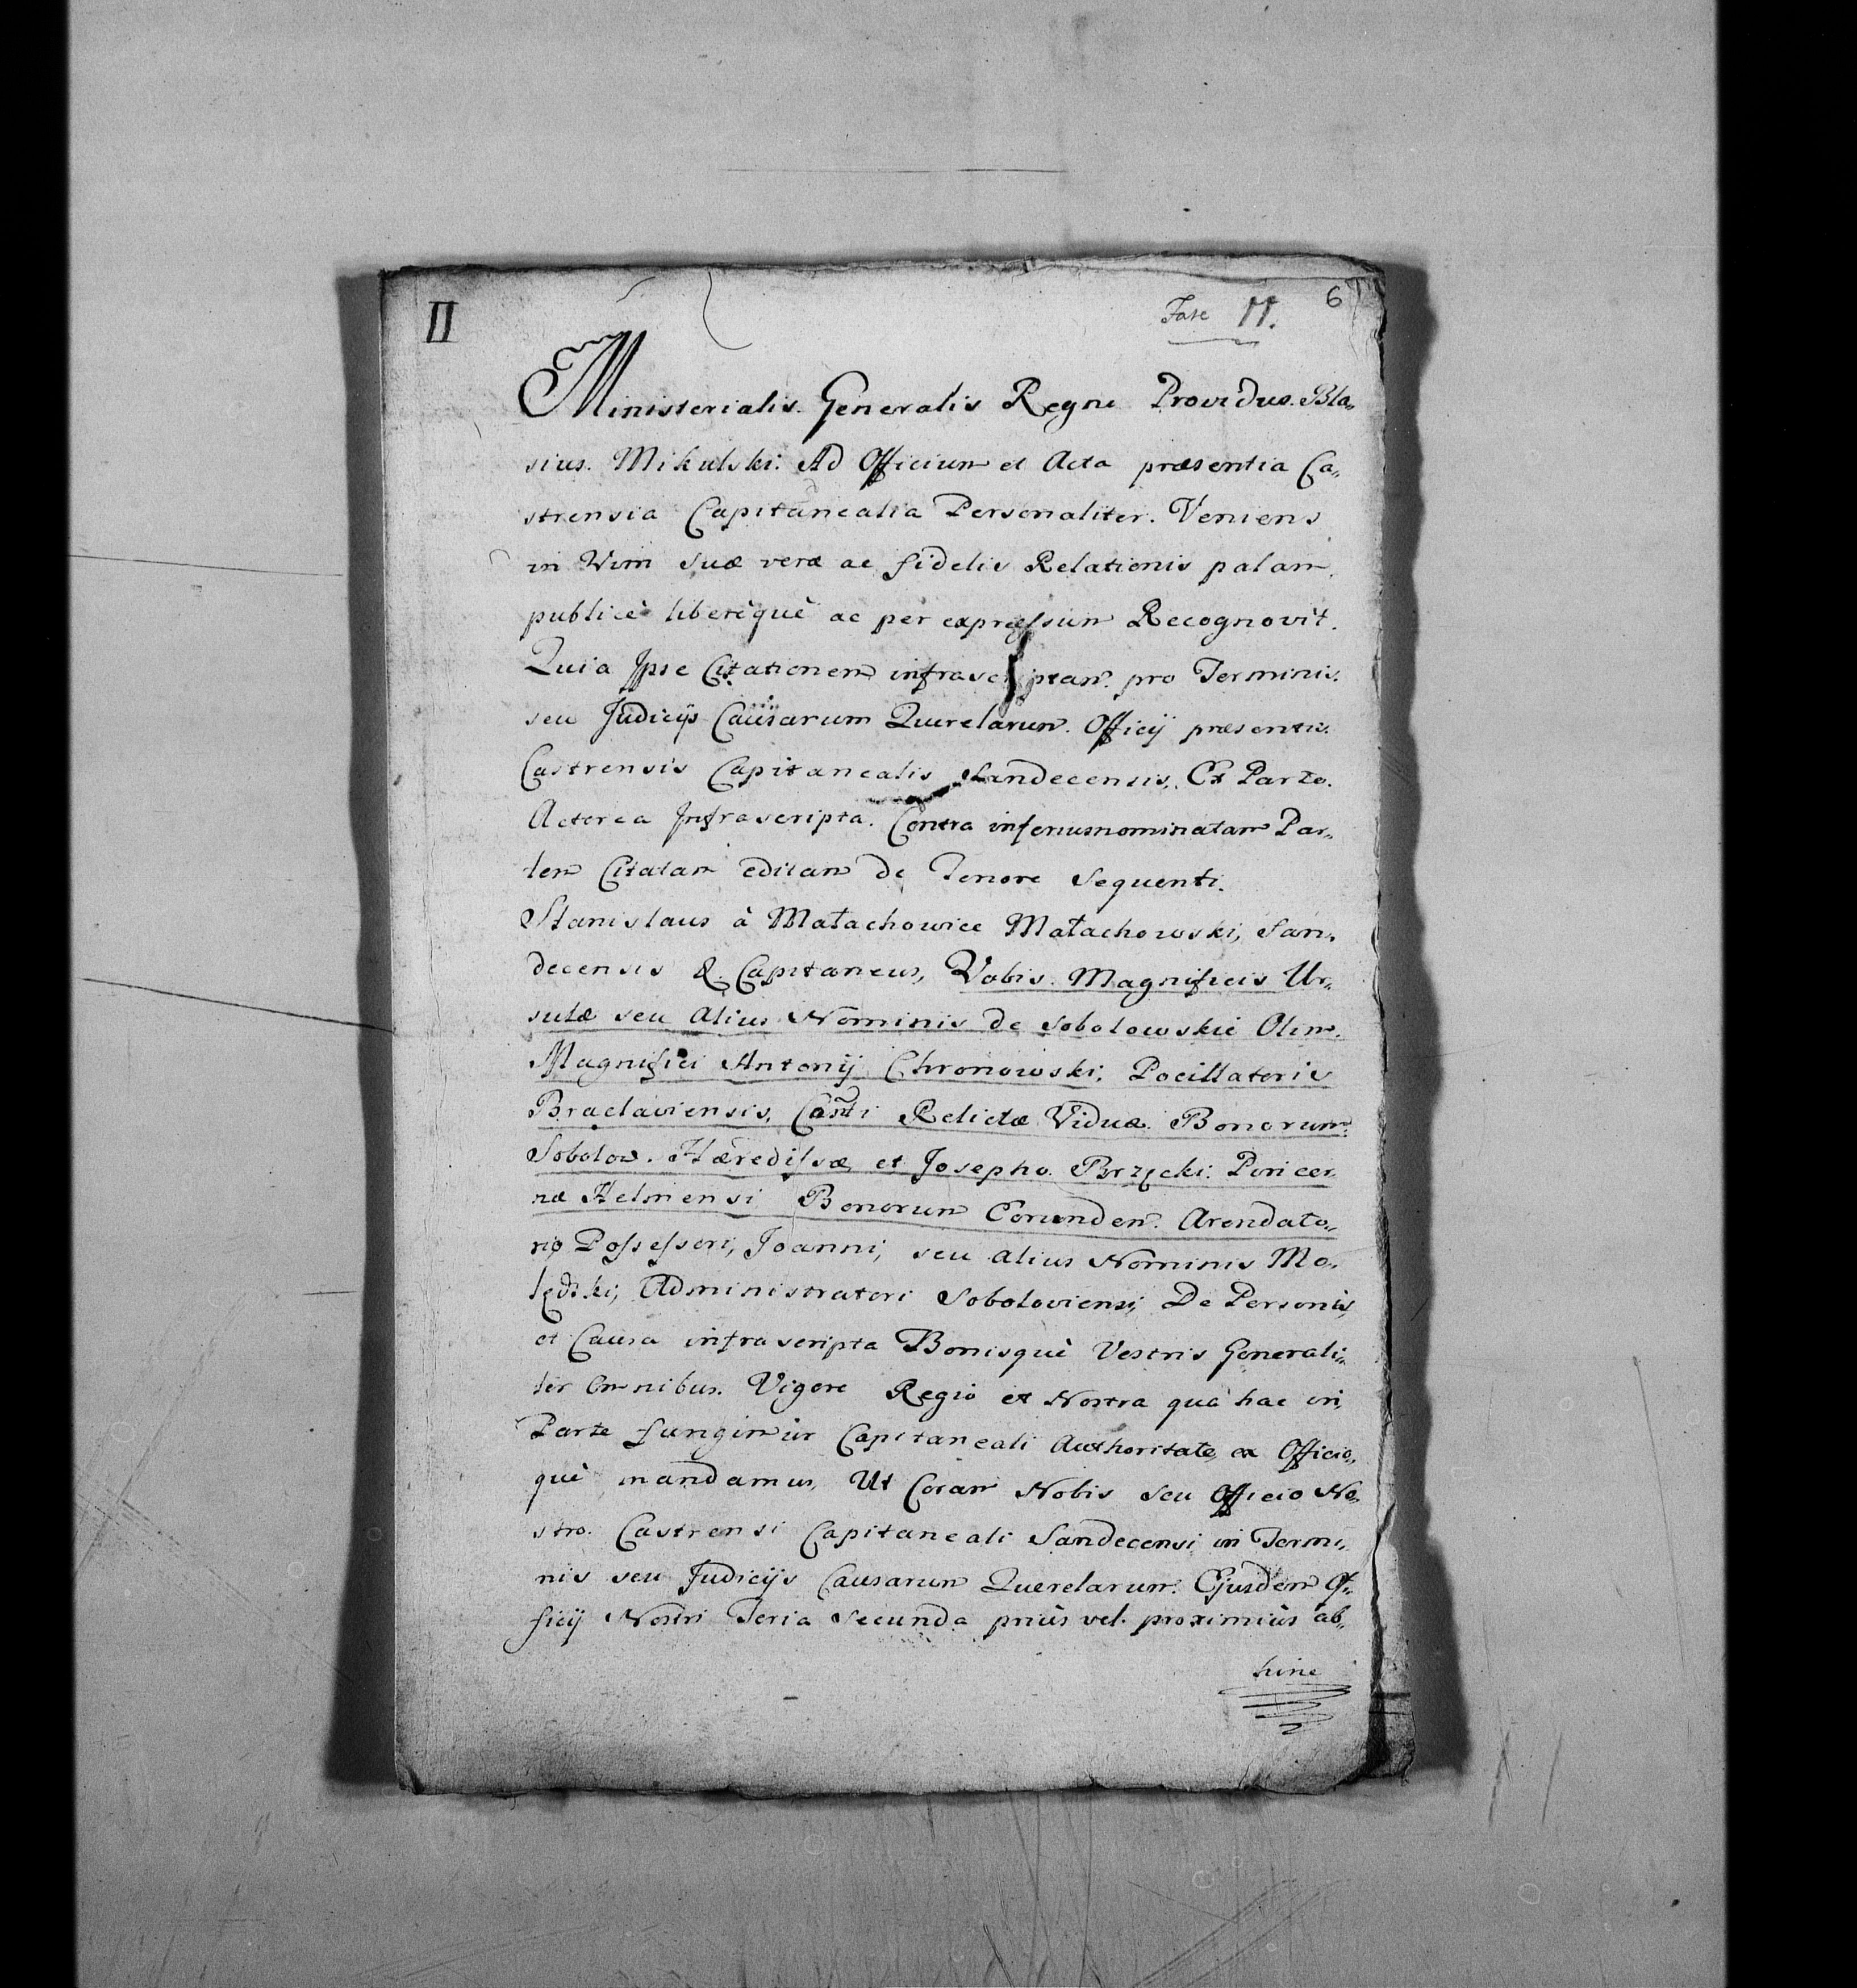 II
Fasc II.
6
Ministerialis Generalis Regni Providus Bla„
sius Mikulski: Ad Officium et Acta præsentia Ca„
strensia Capitanealia Personaliter. Veniens
in Vim suæ veræ ac fidelis Relationis palam,
publicè liberèquè ac per expressum Recognovit.
Quia Ipse Citationem infrascriptam pro Terminis
seu Judicijs Causarum Querelarum Officij præsentis
Castrensis Capitanealis Sandecensis, Ex Parte
Actorea Infrascripta. Contra inferiusnominatam Par„
tem Citatam editam de Tenore Sequenti.
Stanislaus à Małachowice Małachowski, San„
decensis & Capitaneus, Vobis Magnificis Ur„
sulæ seu alius Nominis de Sobolowskie Olim
Magnifici Antonij Chronowski, Pocillatoris
Braclaviensis, Relictæ Viduæ Bonorum
Sobolow Hæredissæ et Josepho Brzęcki Pincer
næ Helmensi Bonorum Eorundem Arendato„
rio Possessori, Joanni, seu alius Nominis Mo„
lędzki, Administratori Soboloviensi, De Personis,
et Causa infrascripta Bonisquè Vestris Generali„
ter Omnibus. Vigore Regiô et Nostra quâ hac in
Parte fungimur Capitaneali Authoritate, ex Officio„
què mandamus, Ut Coram Nobis seu Officio No„
stro Castrensi Capitaneali Sandecensi in Termi„
nis seu Judicijs Causarum Querelarum Ejusdem Of„
ficij Nostri Feria Secunda priùs vel proximiùs ab„
hinc